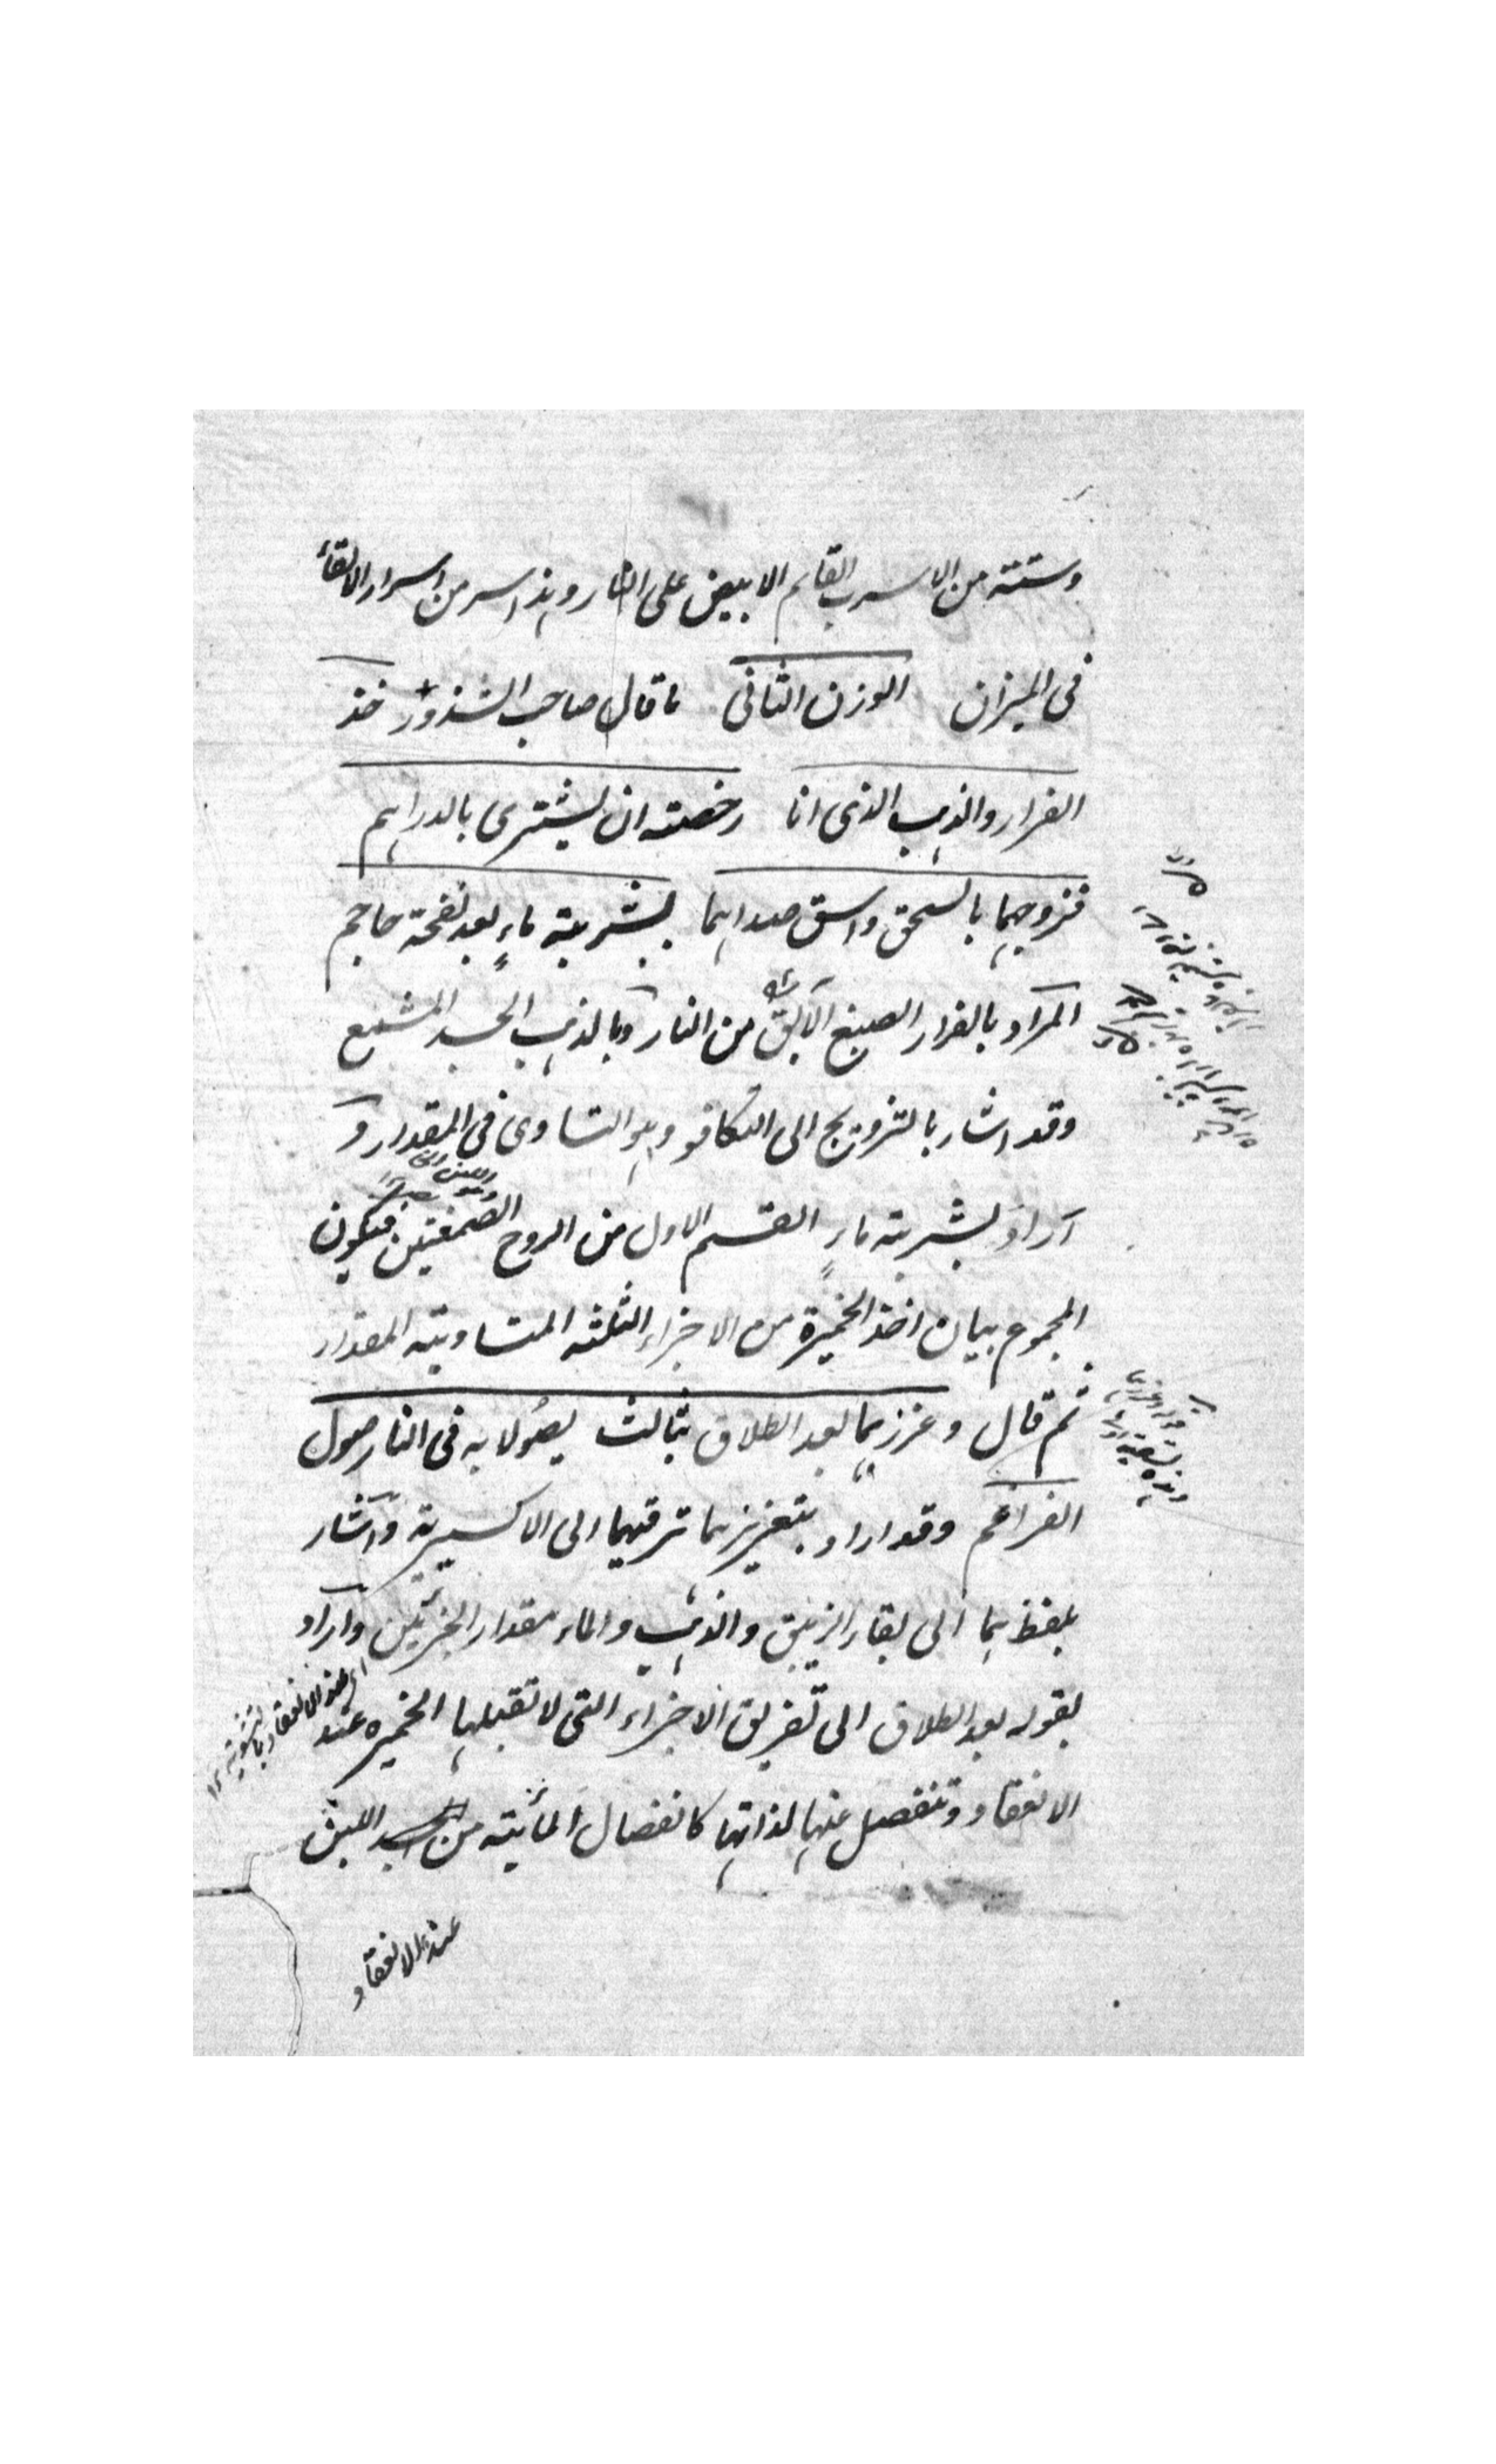 وستة من الاسرب القايم الابيض على النار وهذا سر من اسرار الالقاء
فى الميزان الوزن الثانى ما قال صاحب الشذور خذ
الفرار والذهب الذى انا رخصته ان يشترى بالدراهم
فزوجهما بالسحق واسق صداهما بشربة ماءٍ بعد نفحة حاجم
المراد بالفرار الصبغ الآبق من النار وبالذهب الجسد المشمع
وقد اشار بالتزويج الى التكافو وهو التساوى فى المقدار و
اراد بشربة ماءٍ القسم الاول من الروح الصمغتين فيكون
المجموع بيان اخذ الخميرة من الاجزاء الثلثه المتساوية المقدار
ثم قال وعززهما بعد الطلاق بثالث يصُولا به فى النار صول
الضراغم وقد اراد بتعزيزهما ترقيهما الى الاكسيرية واشار
بلفظ بهما الى بقاء الزيبق والذهب والماء مقدار الجزئين واراد
بقوله بعد الطلاق الى تفريق الاجزاء التى لا تقبلها الخميره عند
الانعقاد وتنفصل عنها لذاتها كانفصال المائية من الجسد اللبن
عند الانعقاد